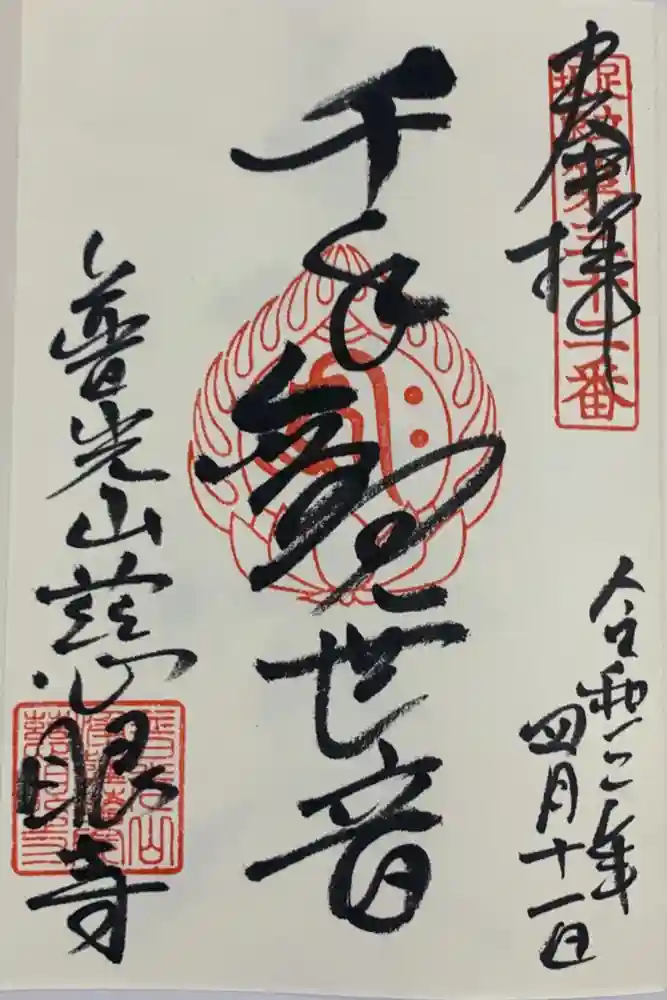 奉拝
第三十二番
令和三年
四月十一日
千手観世音
普光山慈眼寺